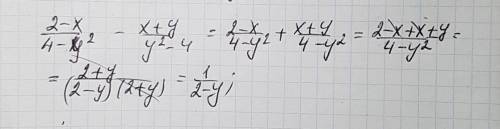 \frac{2-x}{4-y^2} - \frac{x+y}{y^2-4} = \frac{2-x}{4-y^2} + \frac{x+y}{4-y^2} = \frac{2-x+x+y}{4-y^2} =
= \frac{2+y}{(2-y)(2+y)} = \frac{1}{2-y};